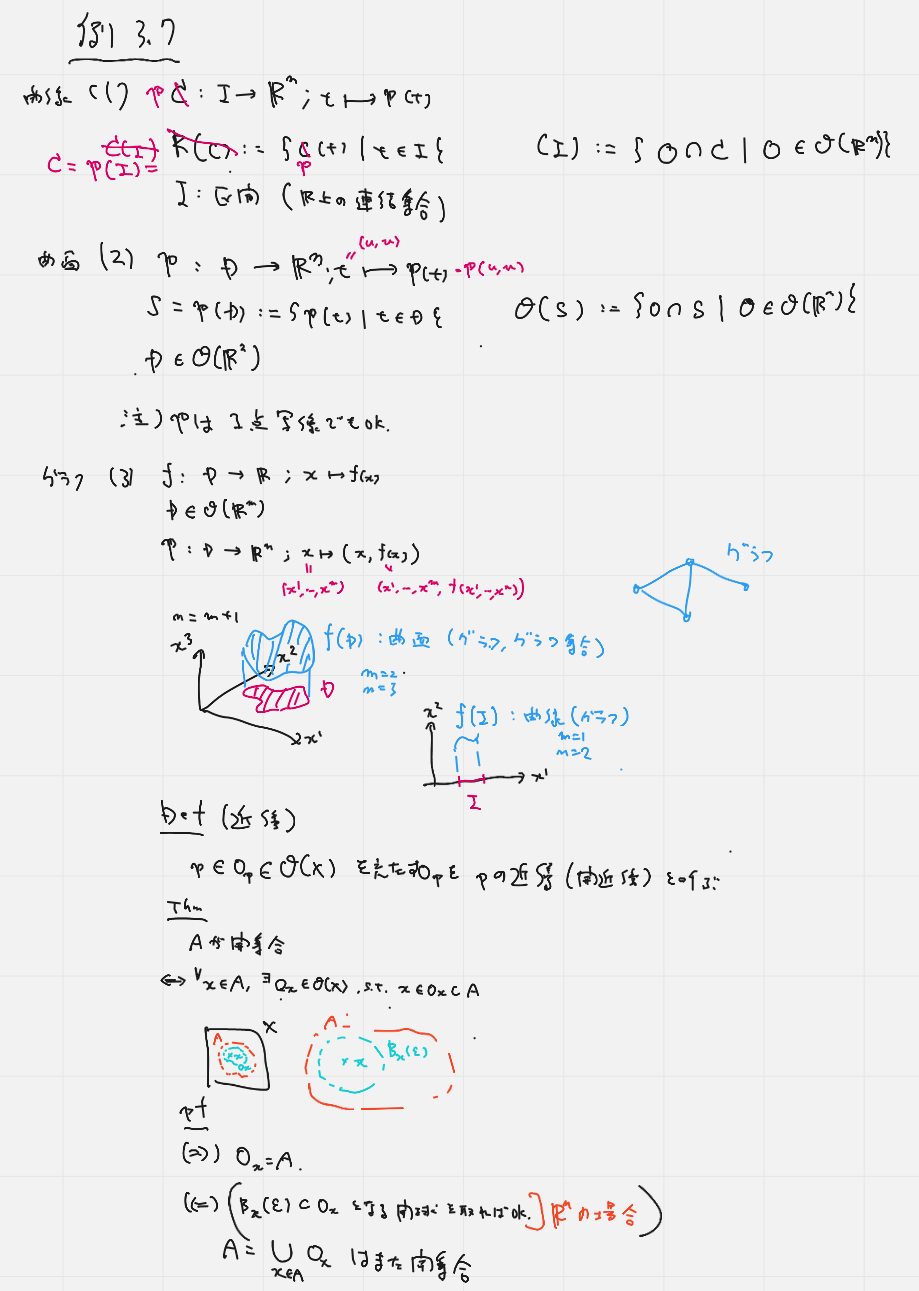 例 3.7
曲線 (1) p C : I → ℝⁿ ; t ↦ p(t)
C(I) R(C) := { C(t) | t ∈ I }
C = p(I) = p
(I) := { O ∩ C | O ∈ O(ℝⁿ)}
I : 区間 (ℝ上の連結集合)
曲面 (2) p : D → ℝⁿ ; t ↦ p(t) = p(u,u)
(u,u)
S = p(D) := { p(t) | t ∈ D }
O(S) := { O ∩ S | O ∈ O(ℝⁿ) }
D ∈ O(ℝ²)
注) pは1点写像でもok.
グラフ (3) f : D → ℝ ; x ↦ f(x)
D ∈ O(ℝᵐ)
p : D → ℝⁿ ; x ↦ (x, f(x))
(x¹,…,xᵐ) (x¹,…,xᵐ, f(x¹,…,xᵐ))
グラフ
n = m+1
x³
x²
f(D) : 曲面 (グラフ, グラフ集合)
m=2
n=3
D
x¹
x²
f(I) : 曲線 (グラフ)
m=1
n=2
x¹
I
Def (近傍)
p ∈ Oₚ ∈ O(X) をみたすOₚを pの近傍 (開近傍) とぶ
Thm
Aが開集合
⇔ ∀x∈A, ∃Oₓ∈O(X) s.t. x∈Oₓ⊂A
X
A
x
Oₓ
A
x
Bₓ(ε)
pf
(⇒) Oₓ = A.
(⇐) (Bₓ(ε) ⊂ Oₓ となる開球を取ればok.] ℝⁿの場合)
A = ∪ Oₓ はまた開集合
x∈A